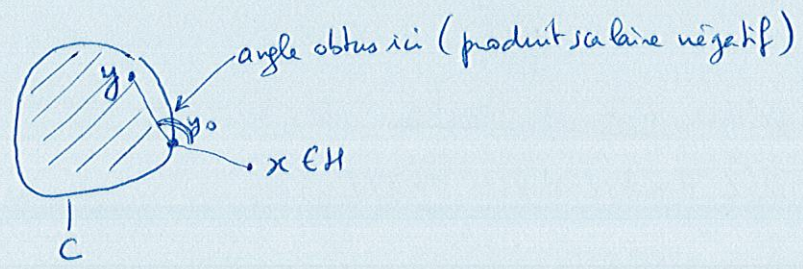 angle obtus ici (produit scalaire négatif)
y
y₀
x ∈ H
C